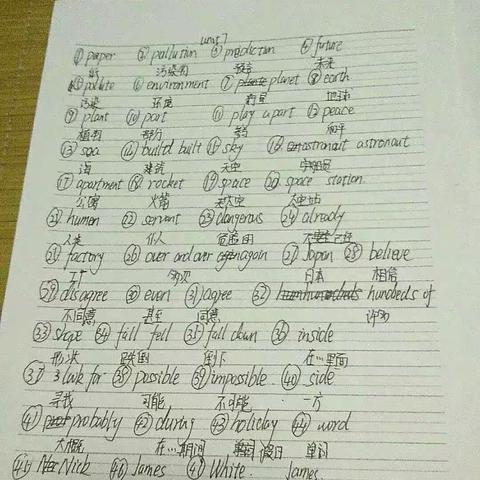 unit 7
① paper ② pollution ③ prediction ④ future
纸 污染 预言 未来
⑤ pollute ⑥ environment ⑦ planet ⑧ earth
污染 环境 行星 地球
⑨ plant ⑩ part ⑪ play a part ⑫ peace
植物 部分 和平
⑬ sea ⑭ build built ⑮ sky ⑯ astronaut astronaut
海 建筑 天空 宇航员
⑰ apartment ⑱ rocket ⑲ space ⑳ space station
公寓 火箭 太空 太空站
㉑ humen ㉒ servant ㉓ dangerous ㉔ already
人类 仆人 危险的 已经
㉕ factory ㉖ over and over again ㉗ Japan ㉘ believe
工厂 多次 日本 相信
㉙ disagree ㉚ even ㉛ agree ㉜ hundreds of
不同意 甚至 同意 许多
㉝ shape ㉞ fall fell ㉟ fall down ㊱ inside
形状 跌倒 倒下 在…里面
㊲ look for ㊳ possible ㊴ impossible ㊵ side
寻找 可能 不可能 一方
㊶ probably ㊷ during ㊸ holiday ㊹ word
大概 在…期间 假日 单词
㊺ Nick ㊻ James ㊼ White. James.